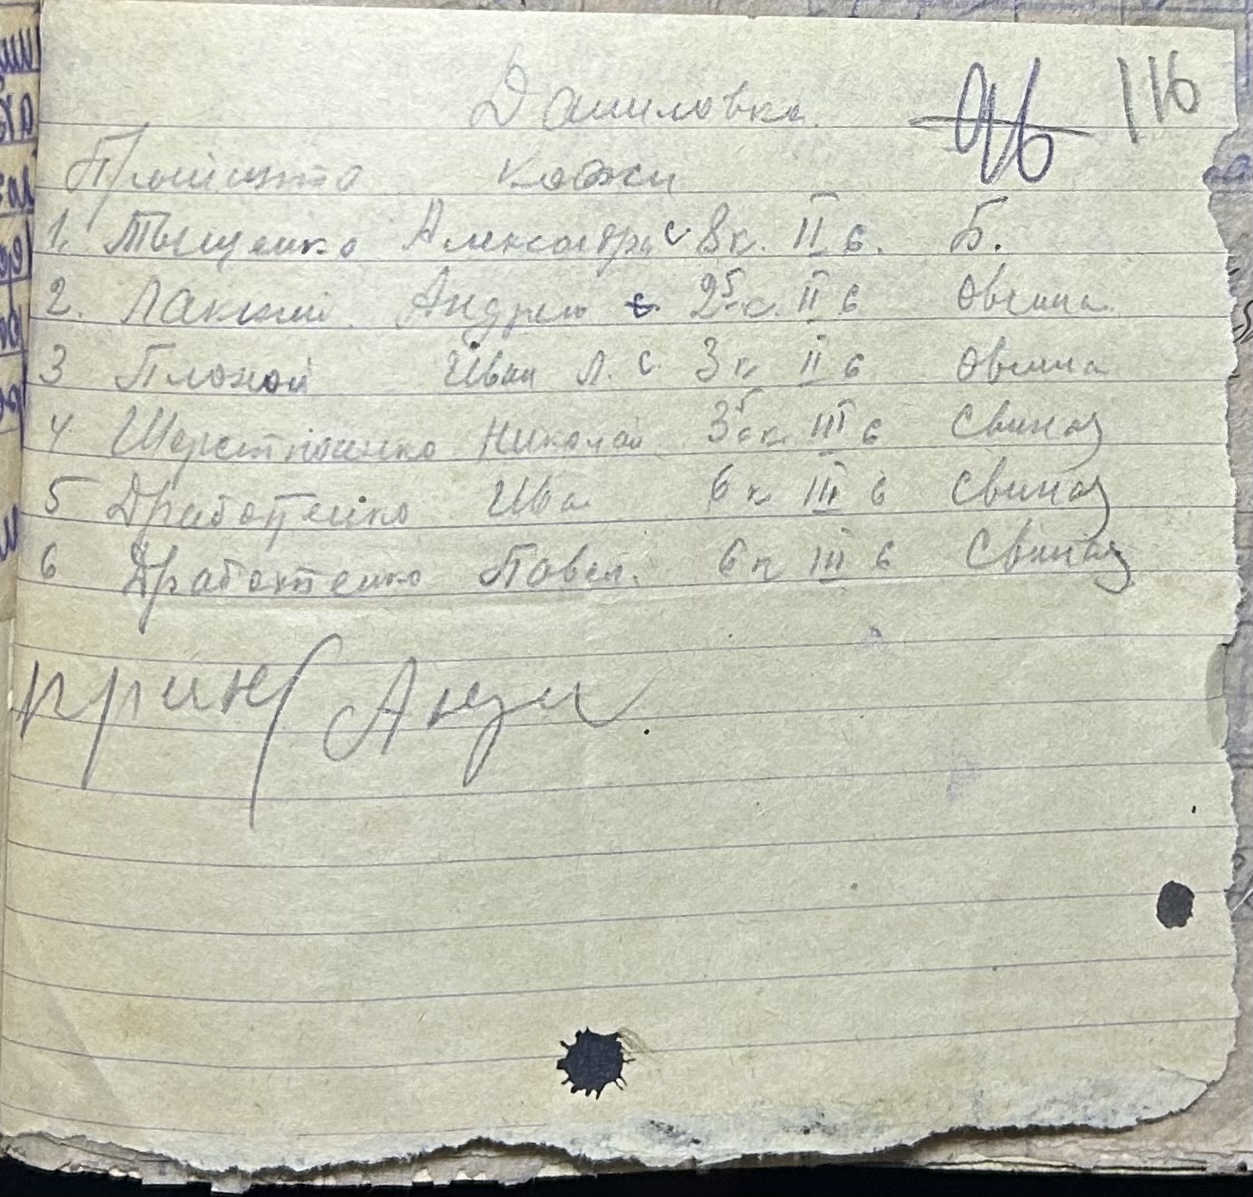 Даниловка. 96 116
Принято кожи
1. Тыщенко Александра с 8 к. II с. Б.
2. Лаккий. Андрею с. 2⁵⁰к. II с Овчина
3 Плохой Иван Л. с. 3 к II с Овчина
4 Шерстюченко Николай 3⁵⁰к III с Свиная
5 Дработенко Ива 6 к III с Свиная
6 Дработенко Павел. 6 к III с Свиная
прин